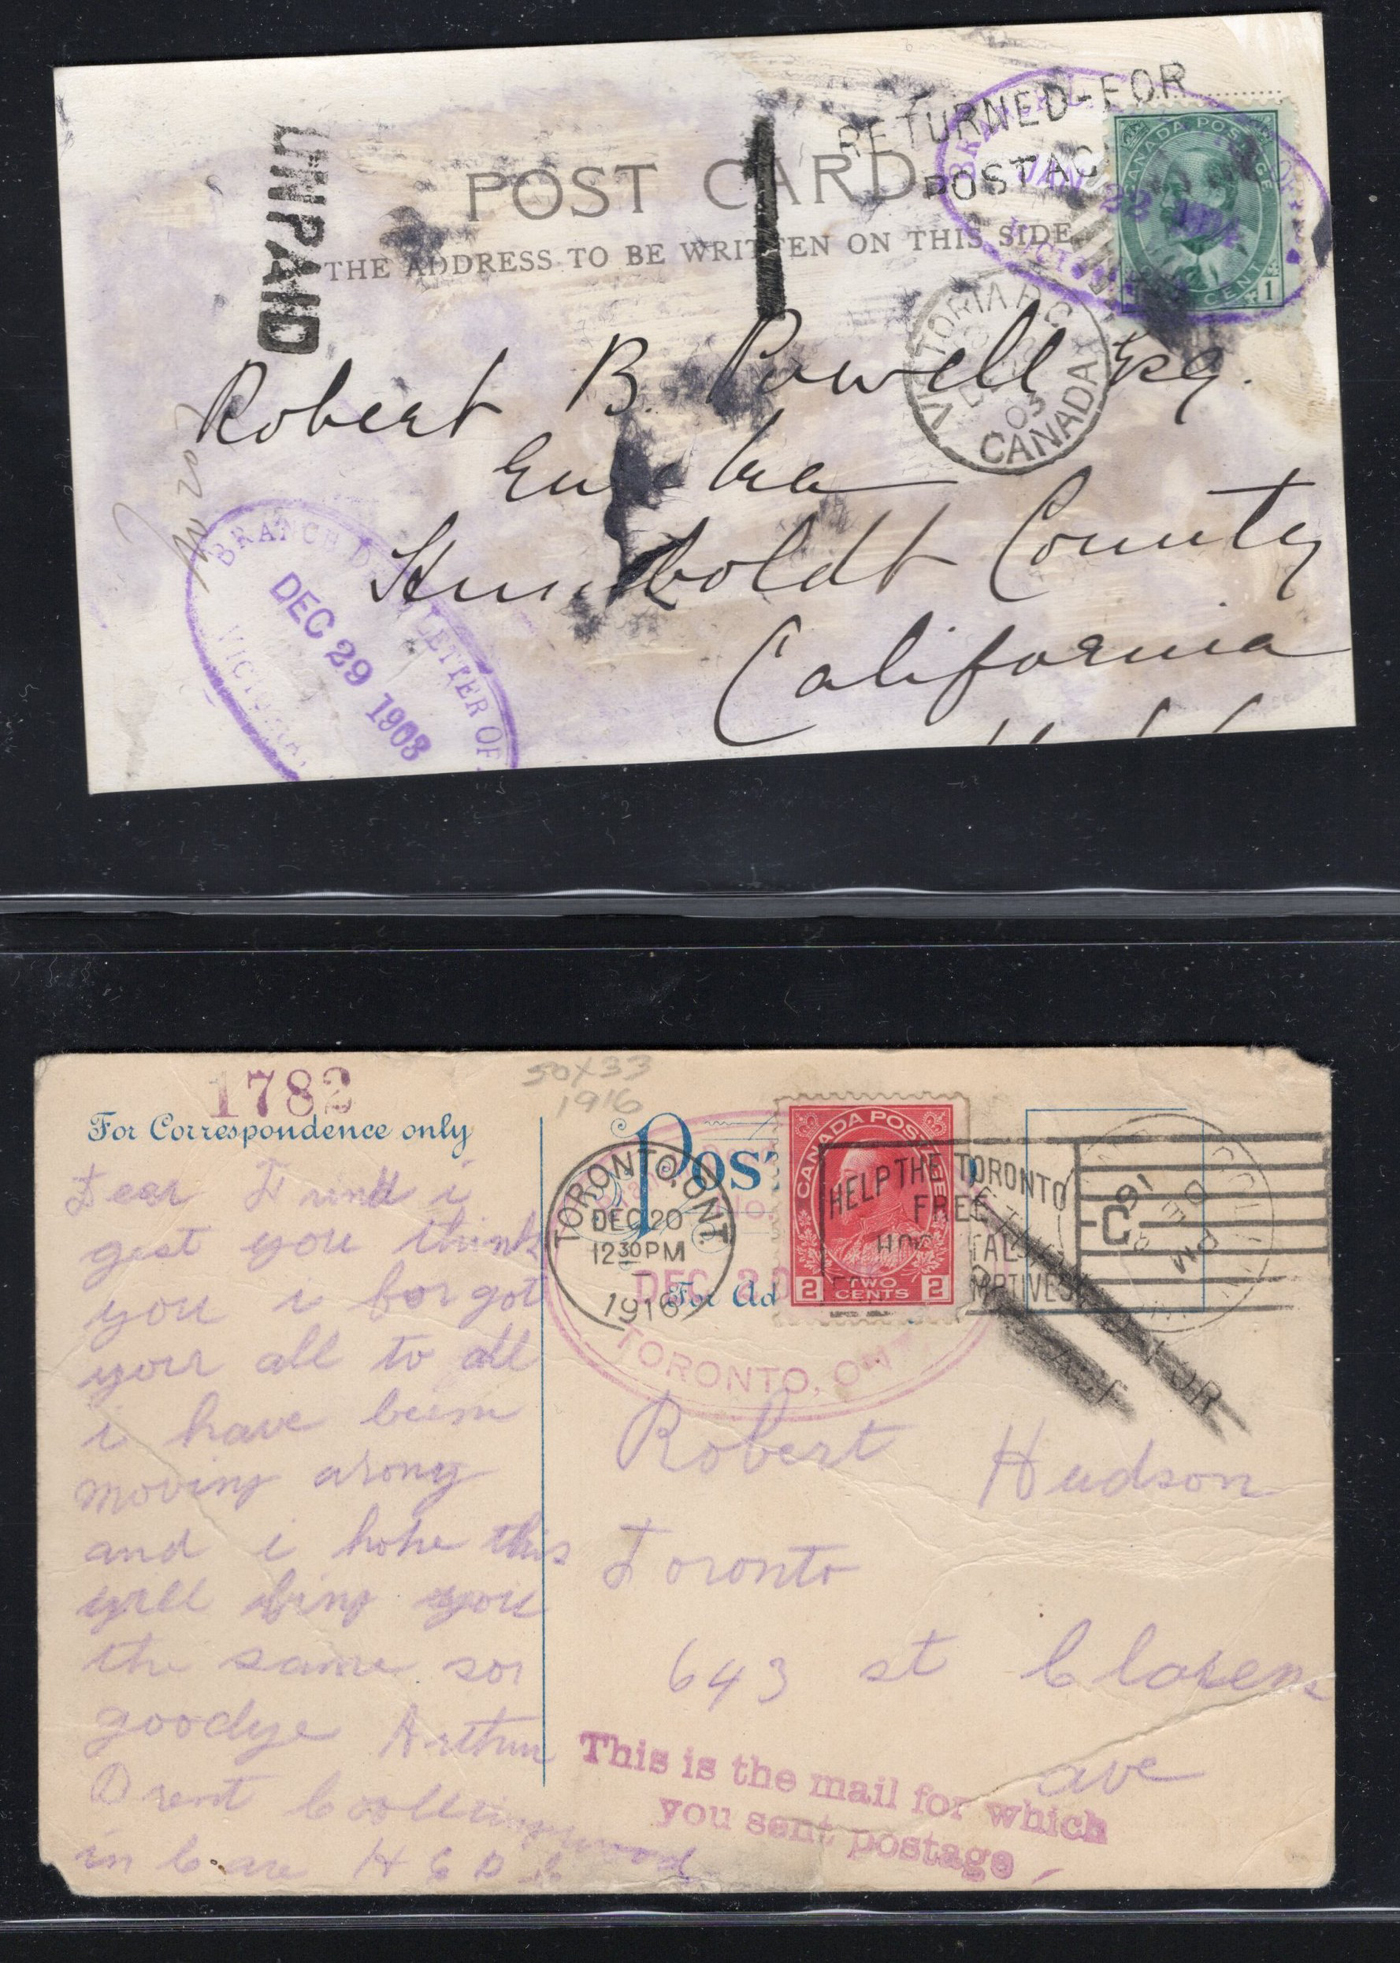 RETURNED-FOR
POSTAG
UNPAID
POST CARD
THE ADDRESS TO BE WRITTEN ON THIS SIDE
CANADA POSTAGE
CENT 1
JAN 22
VICTORIA B.C.
DE
03
CANADA
Robert B. Powell Esq.
Eureka
Humboldt County
California
BRANCH D LETTER OF
DEC 29 1903
VICTORIA
1782
50x33
1916
For Correspondence only
Pos
For Ad
CANADA POSTAGE
2 TWO CENTS 2
TORONTO, ONT.
DEC 20
12 30 PM
1916
HELP THE TORONTO
FREE
HO TAL
MPTIVES
C
16
PM
No.
DEC 20
TORONTO, ONT
D FOR
Dear Frind i
gest you think
you i forgot
your all to all
i have beem
moving arong
and i hohe this
will bing you
the same sor
goodye Arthur
Brent Collingwood
in Care H
Robert Hudson
Toronto
643 st Clarens
ave
This is the mail for which
you sent postage